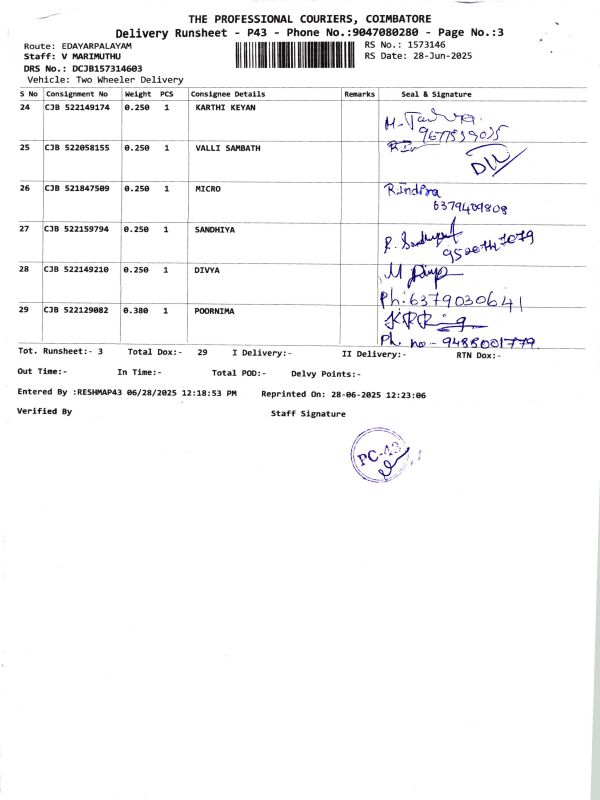 THE PROFESSIONAL COURIERS, COIMBATORE
Delivery Runsheet - P43 - Phone No.:9047080280 - Page No.:3
Route: EDAYARPALAYAM
RS No.: 1573146
Staff: V MARIMUTHU
RS Date: 28-Jun-2025
DRS No.: DCJB157314603
Vehicle: Two Wheeler Delivery
S No Consignment No Weight PCS Consignee Details Remarks Seal & Signature
24 CJB 522149174 0.250 1 KARTHI KEYAN
25 CJB 522058155 0.250 1 VALLI SAMBATH
26 CJB 521847509 0.250 1 MICRO R.Indira
6379409808
27 CJB 522159794 0.250 1 SANDHIYA
28 CJB 522149210 0.250 1 DIVYA M
Ph:6379030641
29 CJB 522129082 0.380 1 POORNIMA
Ph. no - 9488001779
Tot. Runsheet:- 3 Total Dox:- 29 I Delivery:- II Delivery:- RTN Dox:-
Out Time:- In Time:- Total POD:- Delvy Points:-
Entered By :RESHMAP43 06/28/2025 12:18:53 PM Reprinted On: 28-06-2025 12:23:06
Verified By Staff Signature
PC-43